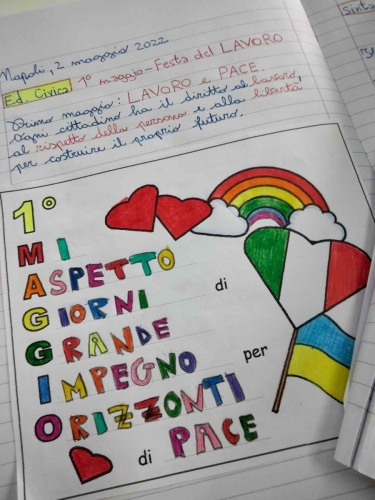 Napoli, 2 maggio 2022
Ed. Civica 1° maggio - Festa del LAVORO
Primo maggio: LAVORO e PACE.
Ogni cittadino ha il diritto al lavoro,
al rispetto della persona e alla libertà
per costruire il proprio futuro.
1°
MI
ASPETTO
GIORNI di
GRANDE
IMPEGNO per
ORIZZONTI
di PACE